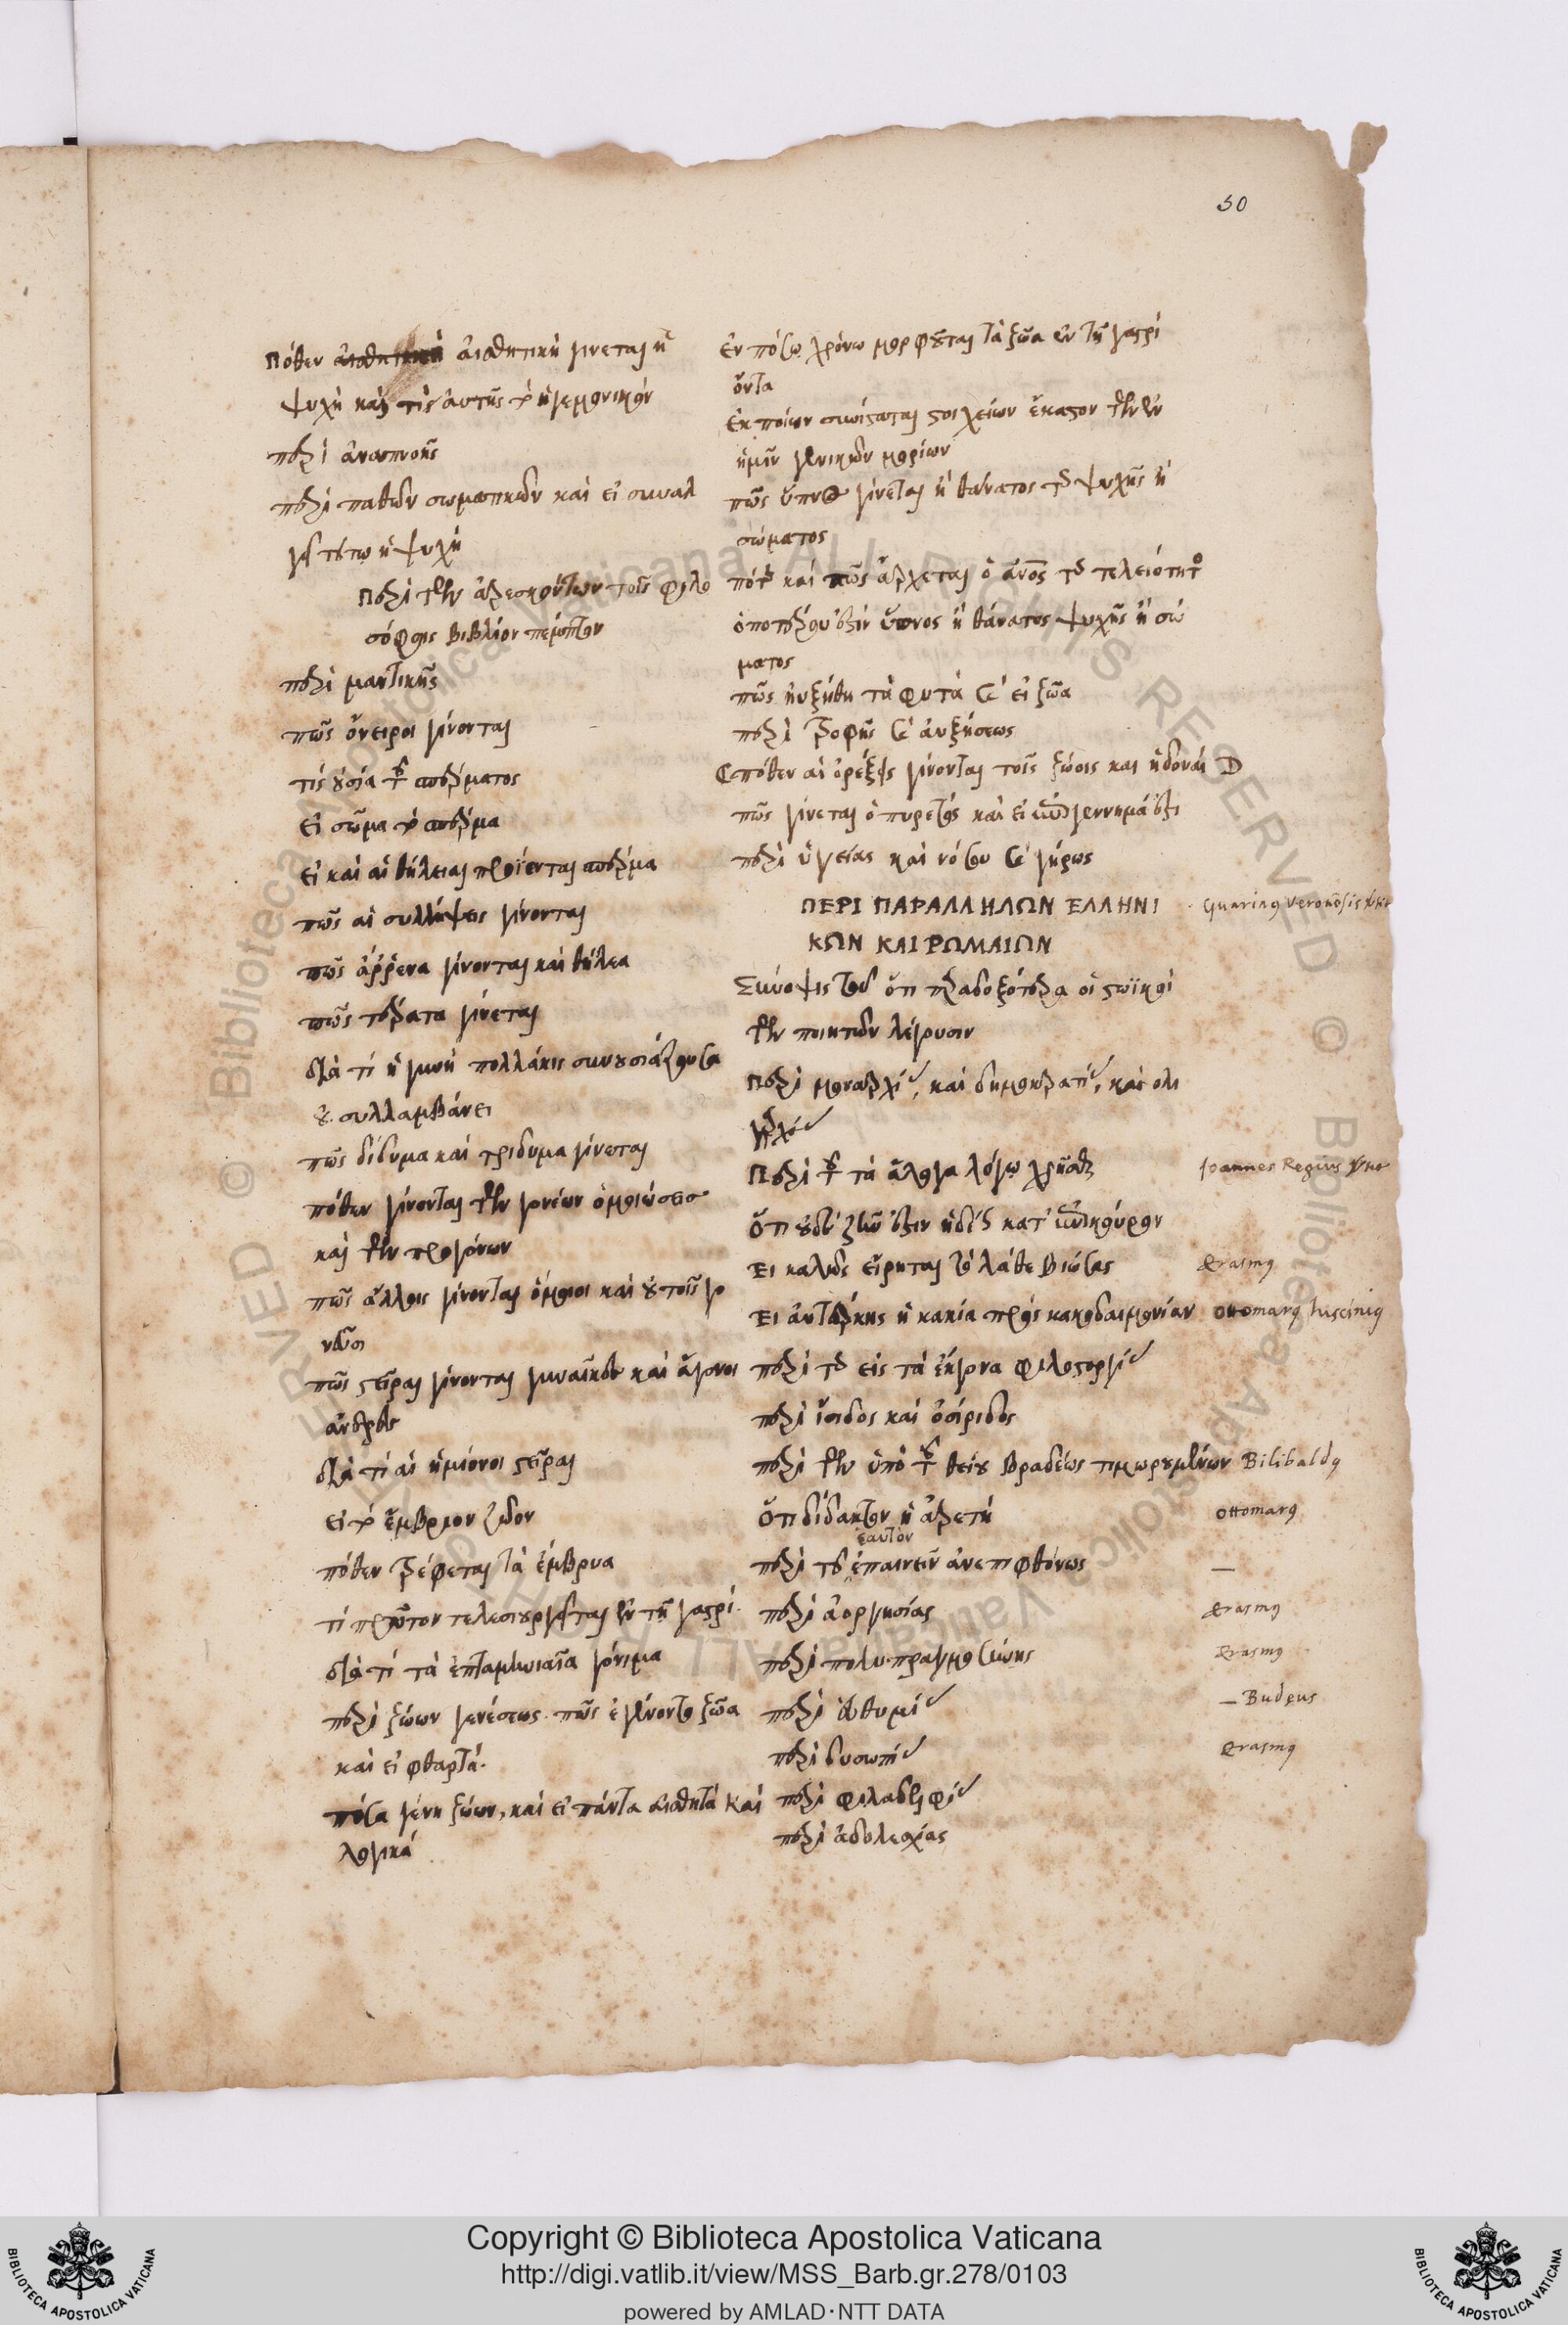 50
Πόθεν αἰσθητικὴ αἰσθητικὴ γίνεται ἡ
ψυχὴ καὶ τίς αὐτῆς τὸ ἡγεμονικόν
περὶ ἀναπνοῆς
περὶ παθῶν σωματικῶν καὶ εἰ συναλ
γεῖ τούτῳ ἡ ψυχή
Περὶ τῶν ἀρεσκόντων τοῖς φιλο
σόφοις βιβλίον πέμπτον
περὶ μαντικῆς
πῶς ὄνειροι γίνονται
τίς οὐσία τοῦ σπέρματος
εἰ σῶμα τὸ σπέρμα
εἰ καὶ αἱ θήλειαι προΐενται σπέρμα
πῶς αἱ συλλήψεις γίνονται
πῶς ἄρρενα γίνονται καὶ θήλεα
πῶς τέρατα γίνεται
διὰ τί ἡ γυνὴ πολλάκις συνουσιάζουσα
οὐ συλλαμβάνει
πῶς δίδυμα καὶ τρίδυμα γίνεται
πόθεν γίνονται τῶν γονέων ὁμοιώσεις
καὶ τῶν προγόνων
πῶς ἄλλοις γίνονται ὅμοιοι καὶ οὐ τοῖς γο
νεῦσι
πῶς στεῖραι γίνονται γυναῖκες καὶ ἄγονοι
ἄνδρες
διὰ τί αἱ ἡμίονοι στεῖραι
εἰ τὸ ἔμβρυον ζῶον
πόθεν τρέφεται τὰ ἔμβρυα
τί πρῶτον τελεσιουργεῖται ἐν τῇ γαστρί
διὰ τί τὰ ἑπταμηνιαῖα γόνιμα
περὶ ζώων γενέσεως πῶς ἐγίνοντο ζῶα
καὶ εἰ φθαρτά.
πόσα γένη ζώων, καὶ εἰ πάντα αἰσθητὰ καὶ
λογικά
ἐν πόσῳ χρόνω μορφοῦται τὰ ζῶα ἐν τῇ γαστρὶ
ὄντα
ἐκ ποίων συνίσταται στοιχείων ἕκαστον τῶν ἐν
ἡμῖν γενικῶν μορίων
πῶς ὕπνος γίνεται ἢ θάνατος τῆς ψυχῆς ἢ
σώματος
πότε καὶ πῶς ἄρχεται ὁ ἄνος τῆς τελειότητος
ὁποτέρου ἐστὶν ὕπνος ἢ θάνατος ψυχῆς ἢ σώ
ματος
πῶς ηὐξήθη τὰ φυτὰ καὶ εἰ ζῶα
περὶ τροφῆς καὶ αὐξήσεως
πόθεν αἱ ὀρέξεις γίνονται τοῖς ζώοις καὶ ἡδοναί
πῶς γίνεται ὁ πυρετὸς καὶ εἰ ἐπιγέννημά ἐστι
περὶ ὑγείας καὶ νόσου καὶ γήρως
ΠΕΡΙ ΠΑΡΑΛΛΗΛΩΝ ΕΛΛΗΝΙ
Guarinus Veronensis
ΚΩΝ ΚΑΙ ΡΩΜΑΙΩΝ
Σύνοψις τοῦ ὅτι παραδοξότερα οἱ στωϊκοὶ
τῶν ποιητῶν λέγουσιν
Περὶ μοναρχίας, καὶ δημοκρατίας, καὶ ολι
γαρχίας
Περὶ τοῦ τὰ ἄλογα λόγῳ χρῆσθαι
Joannes Regius
Ὅτι οὐδὲ ζῆν ἐστιν ἡδέως κατ' ἐπίκουρον
Ει καλῶς εἴρηται τὸ λάθε βιώσας
Erasmus
Ει αὐτάρκης ἡ κακία πρὸς κακοδαιμονίαν
Ottomarus luscinius
περὶ τῆς εἰς τὰ ἔκγονα φιλοστοργίας
περὶ ἴσιδος καὶ ὀσίριδος
περὶ τῶν ὑπὸ τοῦ θείου βραδέως τιμωρουμένων
Bilibaldus
Ὅτι διδακτὸν ἡ ἀρετή
Ottomarus
περὶ τοῦ ἑαυτὸν ἐπαινεῖν ἀνεπιφθόνως
—
περὶ ἀοργησίας
Erasmus
περὶ πολυπραγμοσύνης
Erasmus
περὶ εὐθυμίας
— Budeus
περὶ δυσωπίας
Erasmus
περὶ φιλαδελφίας
περὶ ἀδολεσχίας
© Biblioteca Apostolica Vaticana ALL RIGHTS RESERVED
Copyright © Biblioteca Apostolica Vaticana
http://digi.vatlib.it/view/MSS_Barb.gr.278/0103
powered by AMLAD·NTT DATA
BIBLIOTECA APOSTOLICA VATICANA
BIBLIOTECA APOSTOLICA VATICANA